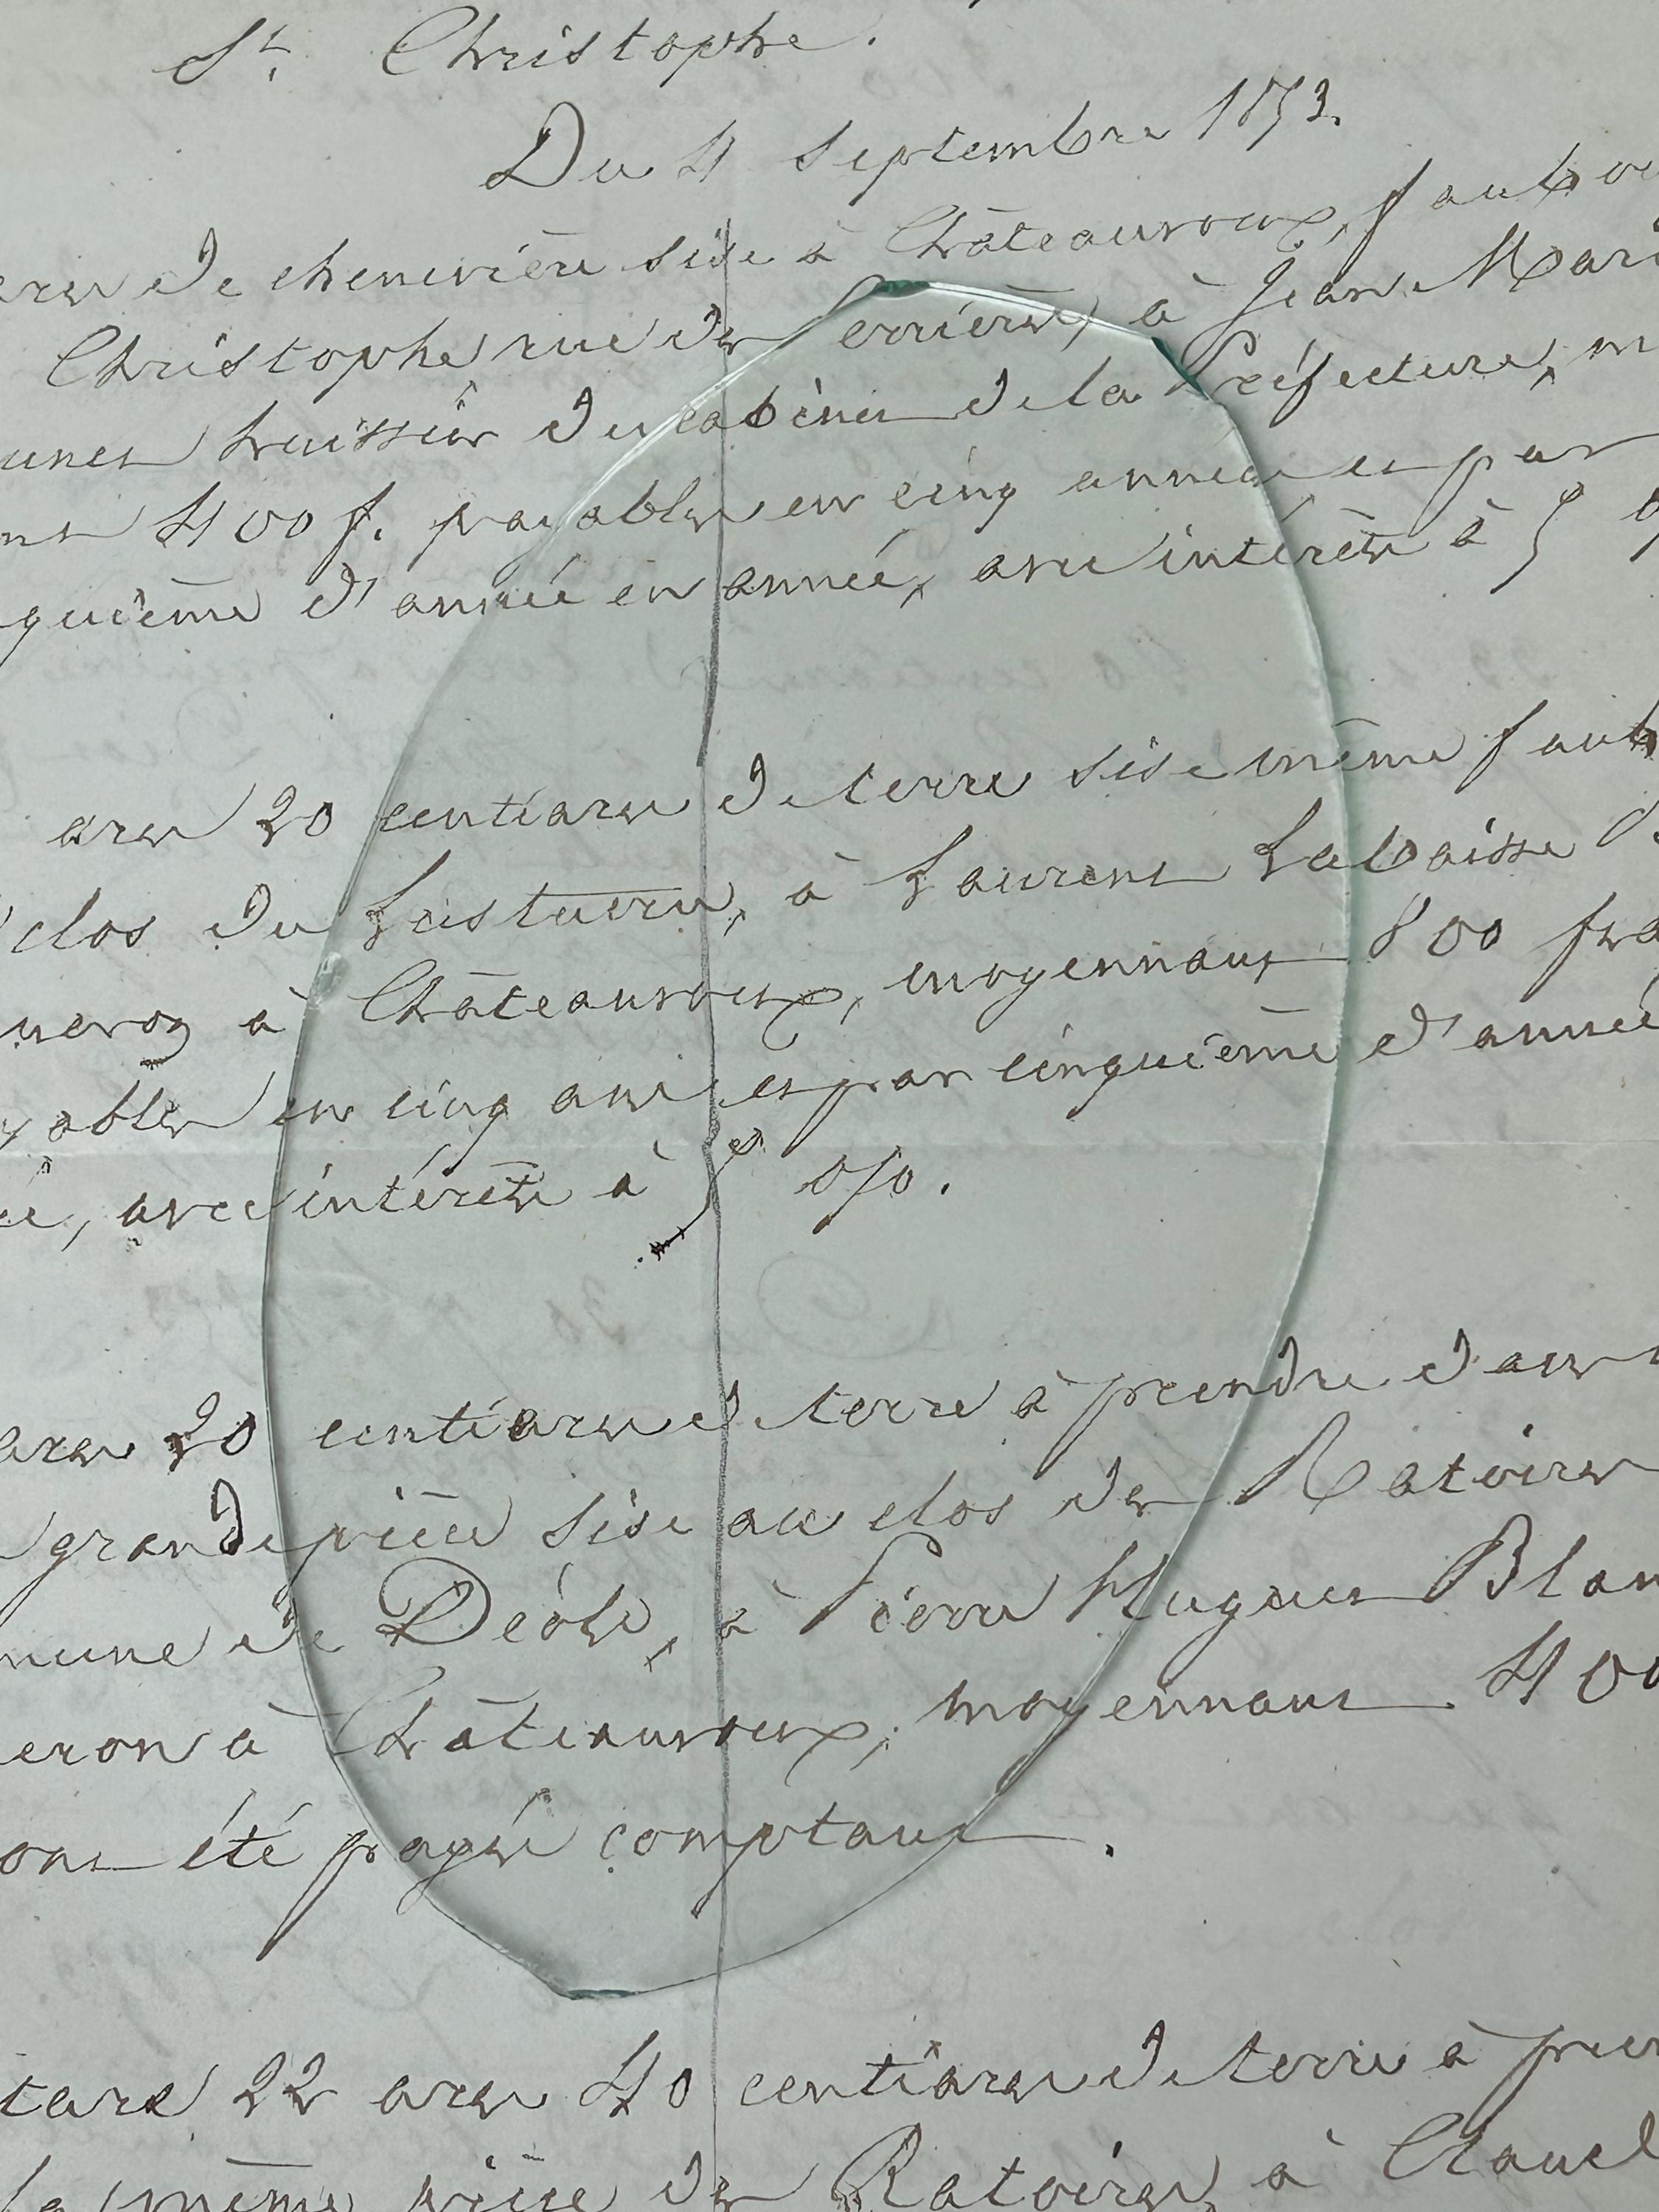 St. Christophe.
Du 4 Septembre 1873.
de chenevière sise à Châteauroux, faubou
Christophe rue des errières, à Jean Mari
huissier du cabinet de la Préfecture, m
400 f. payables en cinq années et par
quième d'année en année, avec intérêts à 5 %
ares 20 centiares de terre sise même faub
clos du à Laurent Labaisse
neron à Châteauroux, moyennant 800 fra
yables en cinq ans et par cinquième d'année
ée, avec intérêts à 5 0/0.
ares 20 centiares de terre à prendre dans
grande pièce sise au clos des Ratoires
mune de Déols, à Pierre Hugues Blan
eron à Châteauroux, moyennant 400
ont été payés comptant.
tare 22 ares 40 centiares de terre à pren
la même pièce des Ratoires, à Claud